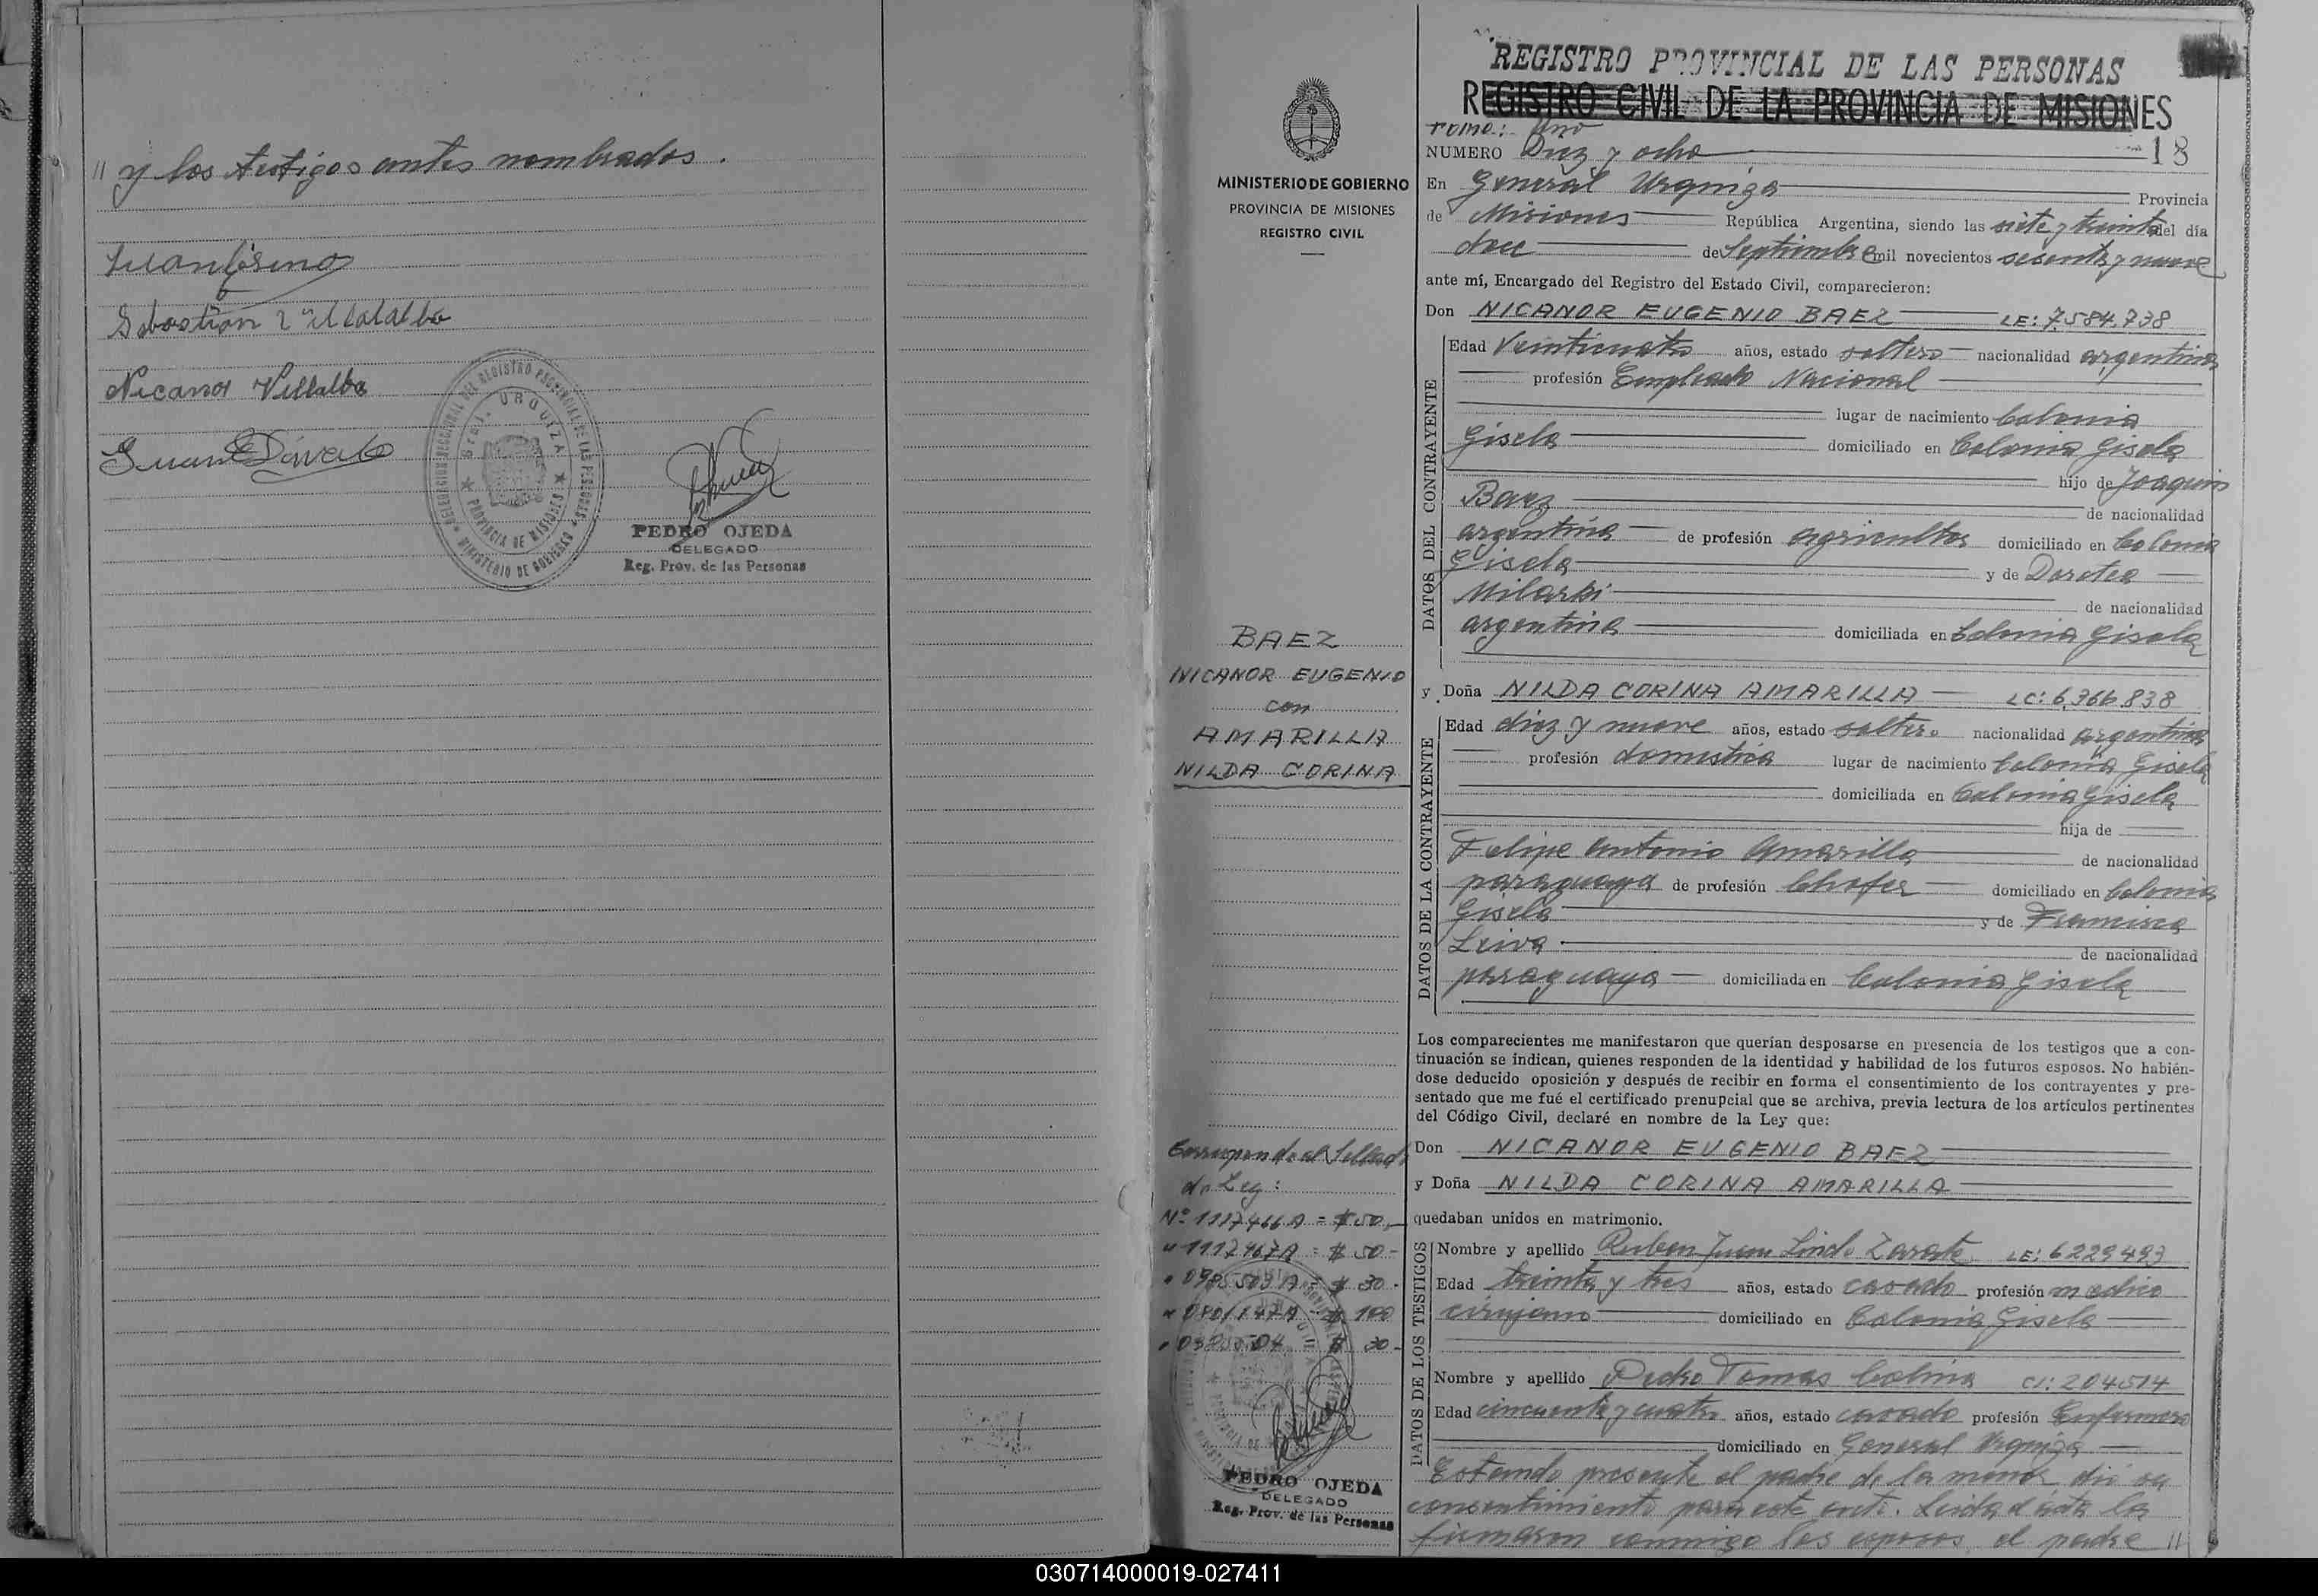 // y los testigos antes nombrados.
Sebastian Villalba
Nicanor Villalba
DELEGACION SECCIONAL DEL REGISTRO PROVINCIAL DE LAS PERSONAS
GRAL. URQUIZA
PROVINCIA DE MISIONES
MINISTERIO DE GOBIERNO
PEDRO OJEDA
DELEGADO
Reg. Prov. de las Personas
MINISTERIO DE GOBIERNO
PROVINCIA DE MISIONES
REGISTRO CIVIL
BAEZ
NICANOR EUGENIO
con
AMARILLA
NILDA CORINA
Corresponde al Sellado
de Ley:
Nº 1117466 A = $ 50,-
" 1117467 A = $ 50-
$ 30-
$ 100
$ 30-
PEDRO OJEDA
DELEGADO
Reg. Prov. de las Personas
REGISTRO PROVINCIAL DE LAS PERSONAS
REGISTRO CIVIL DE LA PROVINCIA DE MISIONES
Tomo: Uno
NUMERO Diez y ocho 18
En General Urquiza Provincia
de Misiones República Argentina, siendo las siete y treinta del día
doce de Septiembre mil novecientos sesenta y nueve
ante mí, Encargado del Registro del Estado Civil, comparecieron:
Don NICANOR EUGENIO BAEZ LE: 7.584.738
DATOS DEL CONTRAYENTE
Edad Veinticuatro años, estado soltero nacionalidad argentina
profesión Empleado Nacional
lugar de nacimiento Colonia
Gisela domiciliado en Colonia Gisela
hijo de Joaquin
Baez de nacionalidad
argentina de profesión agricultor domiciliado en Colonia
Gisela y de Dorotea
Milarski de nacionalidad
argentina domiciliada en Colonia Gisela
y Doña NILDA CORINA AMARILLA LC: 6.366.838
DATOS DE LA CONTRAYENTE
Edad diez y nueve años, estado soltera nacionalidad argentina
profesión domestica lugar de nacimiento Colonia Gisela
domiciliada en Colonia Gisela
hija de
Felipe Antonio Amarilla de nacionalidad
paraguaya de profesión Chofer domiciliado en Colonia
Gisela y de Francisca
Leiva de nacionalidad
paraguaya domiciliada en Colonia Gisela
Los comparecientes me manifestaron que querían desposarse en presencia de los testigos que a con-
tinuación se indican, quienes responden de la identidad y habilidad de los futuros esposos. No habién-
dose deducido oposición y después de recibir en forma el consentimiento de los contrayentes y pre-
sentado que me fué el certificado prenupcial que se archiva, previa lectura de los artículos pertinentes
del Código Civil, declaré en nombre de la Ley que:
Don NICANOR EUGENIO BAEZ
y Doña NILDA CORINA AMARILLA
quedaban unidos en matrimonio.
DATOS DE LOS TESTIGOS
Nombre y apellido Ruben Juan Lindo Zarate LE: 6229493
Edad treinta y tres años, estado casado profesión medico
cirujano domiciliado en Colonia Gisela
Nombre y apellido Pedro Tomas Colina CI: 204514
Edad cincuenta y cuatro años, estado casado profesión Enfermero
domiciliado en General Urquiza
Estando presente el padre de la menor, dió su
consentimiento para este acto. Leida el acta la
firmaron conmigo los esposos, el padre //
030714000019-027411